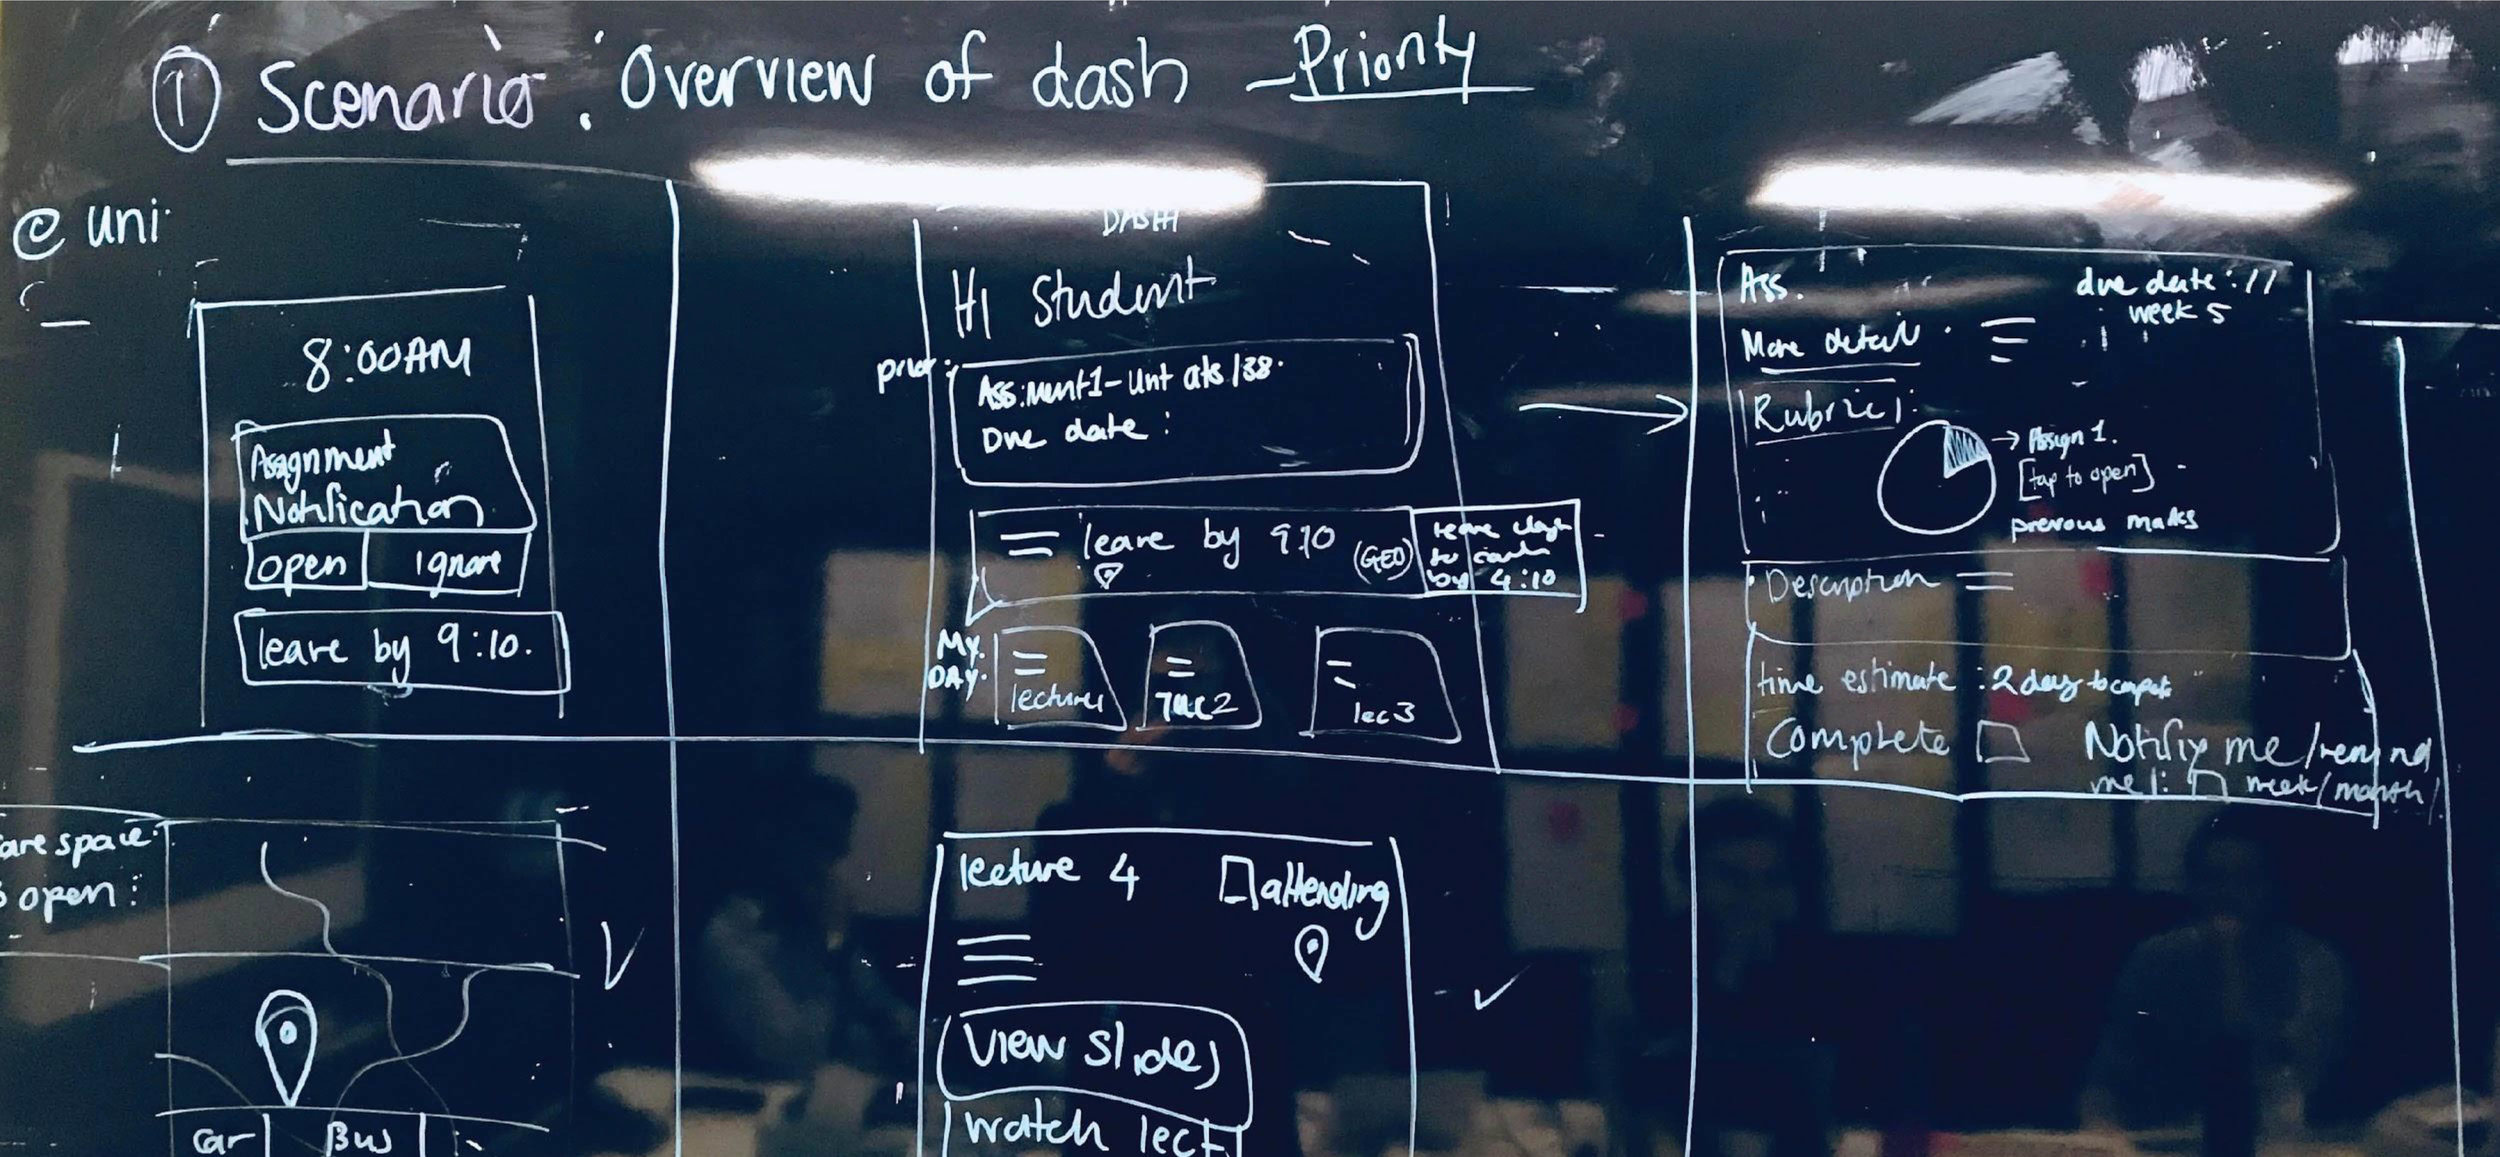 ① Scenario : Overview of dash - Priority
@ uni
8:00AM
Assignment
Notification
open
ignore
leave by 9:10.
DASH
Hi Student
prior:
Due date :
leave by 9:10
(GEO)
by 4:10
MY
DAY.
lecture1
lec3
Ass.
due date: //
week 5
More detail
Rubric:
→ Assign 1.
[tap to open]
previous marks
Description
time estimate : 2 day to
Complete
Notify me/remind
me/: week/month
are space
open:
Car
Bus
lecture 4
attending
View slides
Watch lect